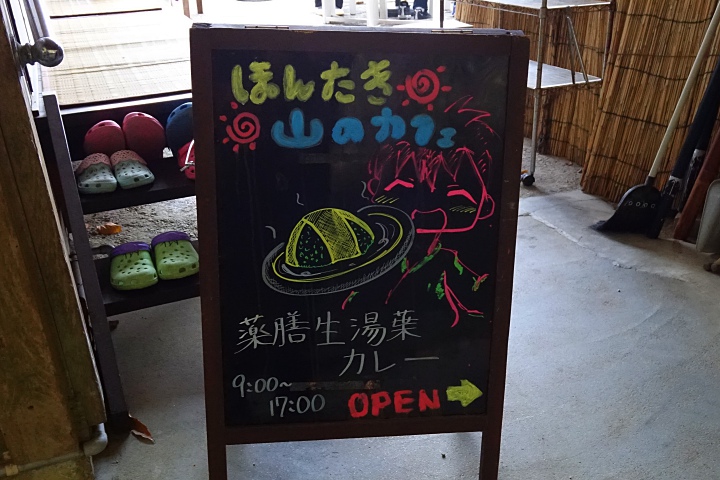 ほんたき
山のカフェ
薬膳生湯葉
カレー
9:00~
17:00
OPEN